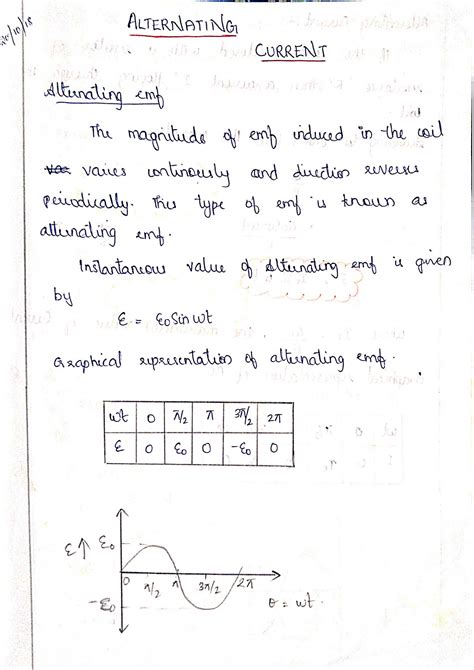 20/10/18
ALTERNATING
CURRENT
Alternating emf
The magnitude of emf induced in the coil
varies continously and direction reverses
periodically. This type of emf is known as
alternating emf.
Instantaneous value of alternating emf is given
by
ε = ε₀ Sin wt
Graphical representation of alternating emf.
wt 0 π/2 π 3π/2 2π
ε 0 ε₀ 0 -ε₀ 0
ε↑ ε₀
0 π/2 π 3π/2 2π
-ε₀ θ = wt.